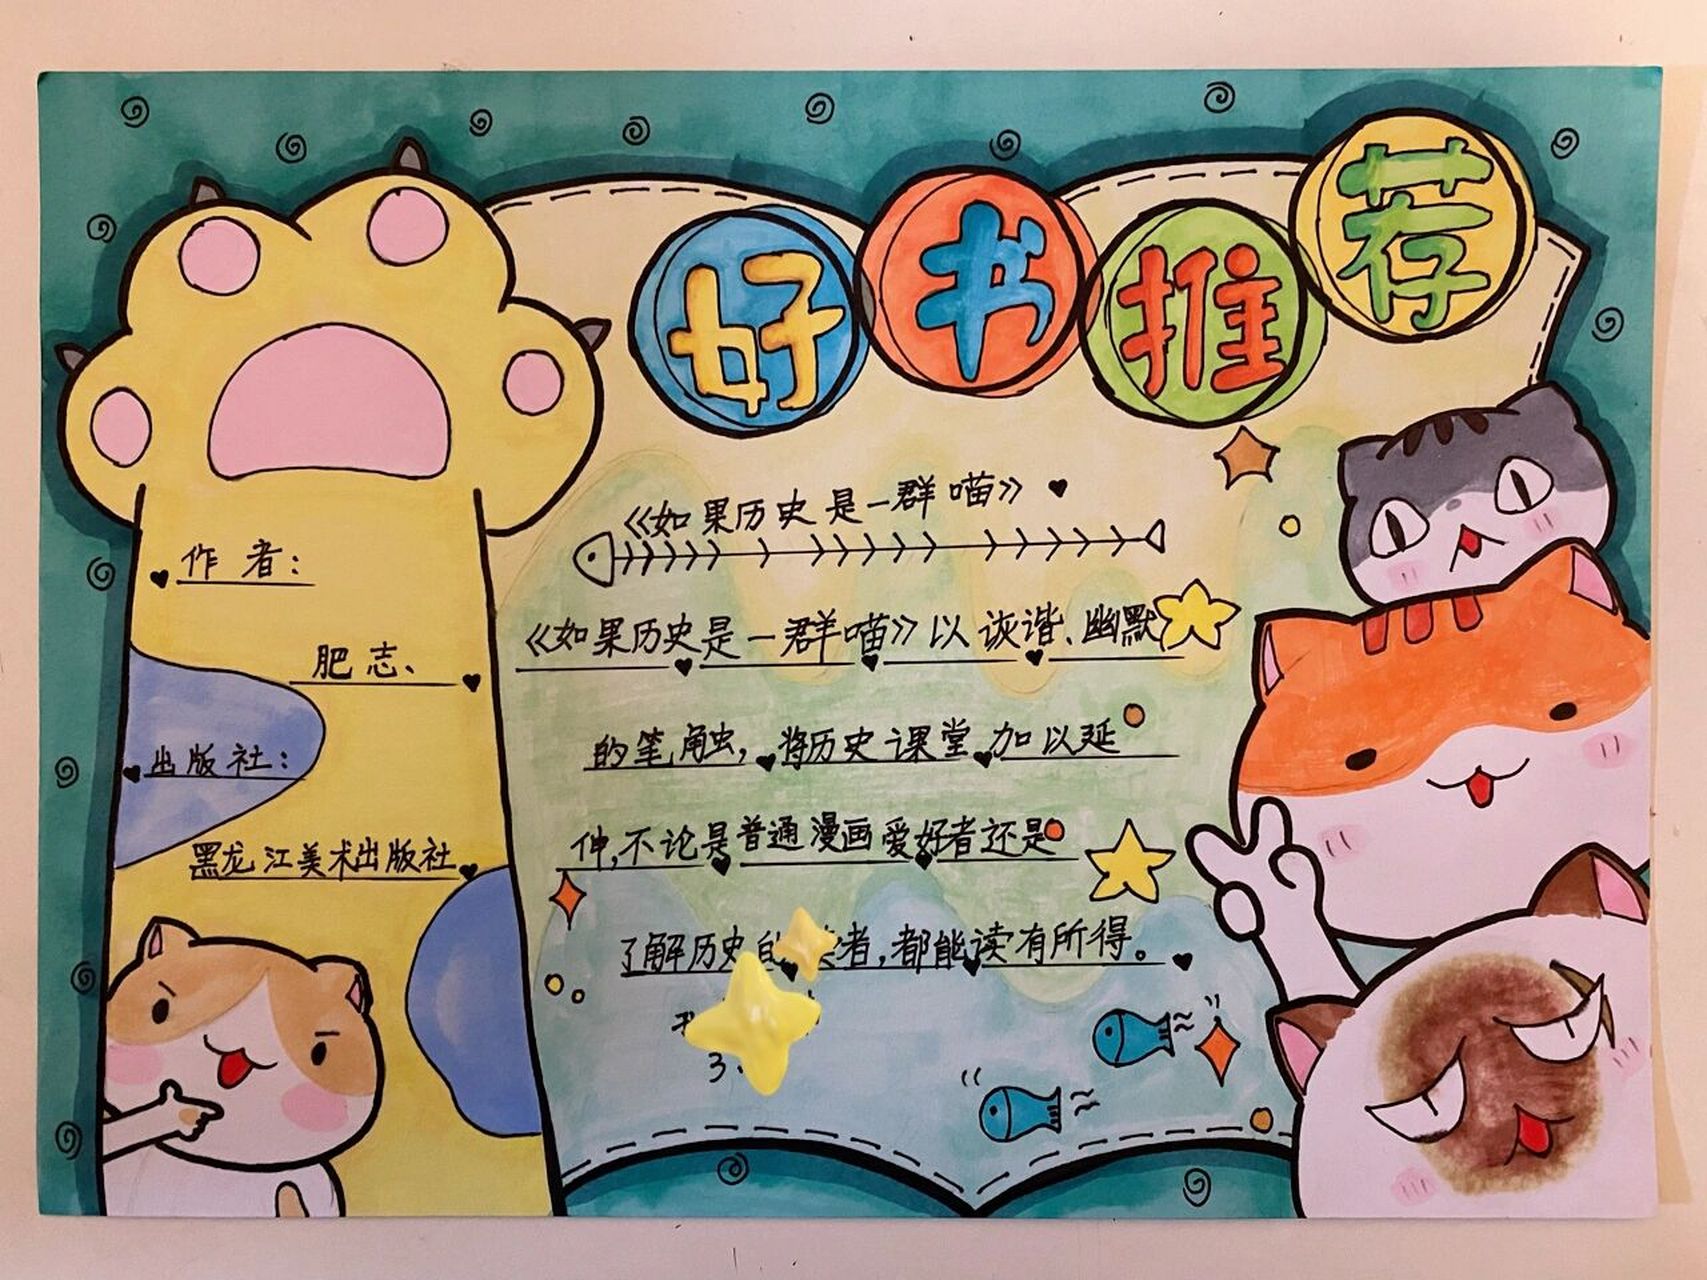 好书推荐
《如果历史是一群喵》
作者：
肥志、
出版社：
黑龙江美术出版社
《如果历史是一群喵》以诙谐、幽默
的笔触，将历史课堂加以延
伸，不论是普通漫画爱好者还是
了解历史的读者，都能读有所得。
3